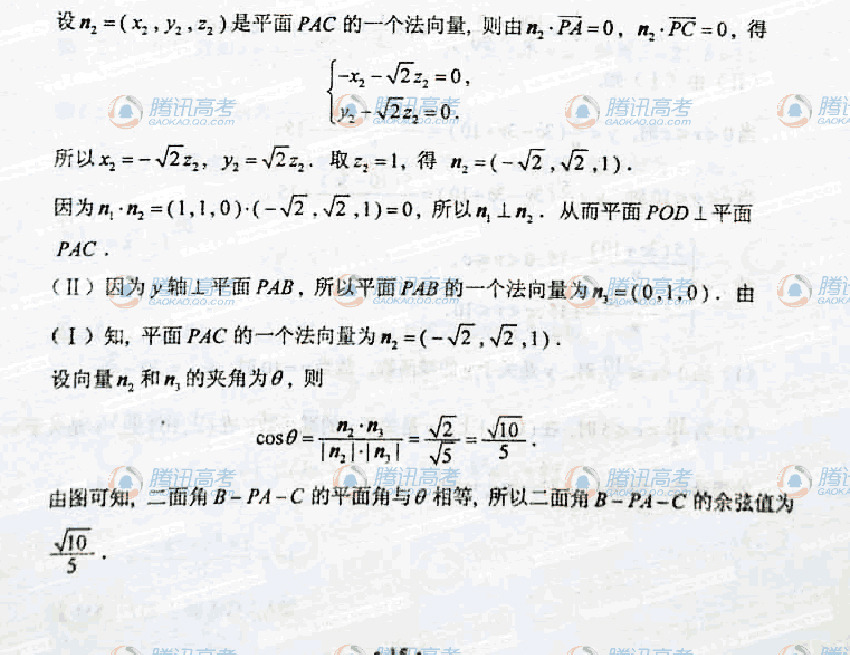 设 n₂ = ( x₂ , y₂ , z₂ ) 是平面 PAC 的一个法向量, 则由 n₂ · PA = 0, n₂ · PC = 0, 得
{ -x₂ - √2 z₂ = 0,
y₂ - √2 z₂ = 0.
所以 x₂ = -√2 z₂, y₂ = √2 z₂. 取 z₂ = 1, 得 n₂ = (-√2 , √2 , 1).
因为 n₁ · n₂ = (1,1,0) · (-√2 , √2 ,1) = 0, 所以 n₁ ⊥ n₂. 从而平面 POD ⊥ 平面
PAC .
(Ⅱ) 因为 y 轴 ⊥ 平面 PAB, 所以平面 PAB 的一个法向量为 n₃ = (0,1,0). 由
(Ⅰ) 知, 平面 PAC 的一个法向量为 n₂ = (-√2 , √2 , 1).
设向量 n₂ 和 n₃ 的夹角为 θ, 则
cosθ = n₂ · n₃ / |n₂| · |n₃| = √2 / √5 = √10 / 5 .
由图可知, 二面角 B-PA-C 的平面角与 θ 相等, 所以二面角 B-PA-C 的余弦值为
√10 / 5 .
· 15 ·
腾讯高考
GAOKAO.QQ.COM